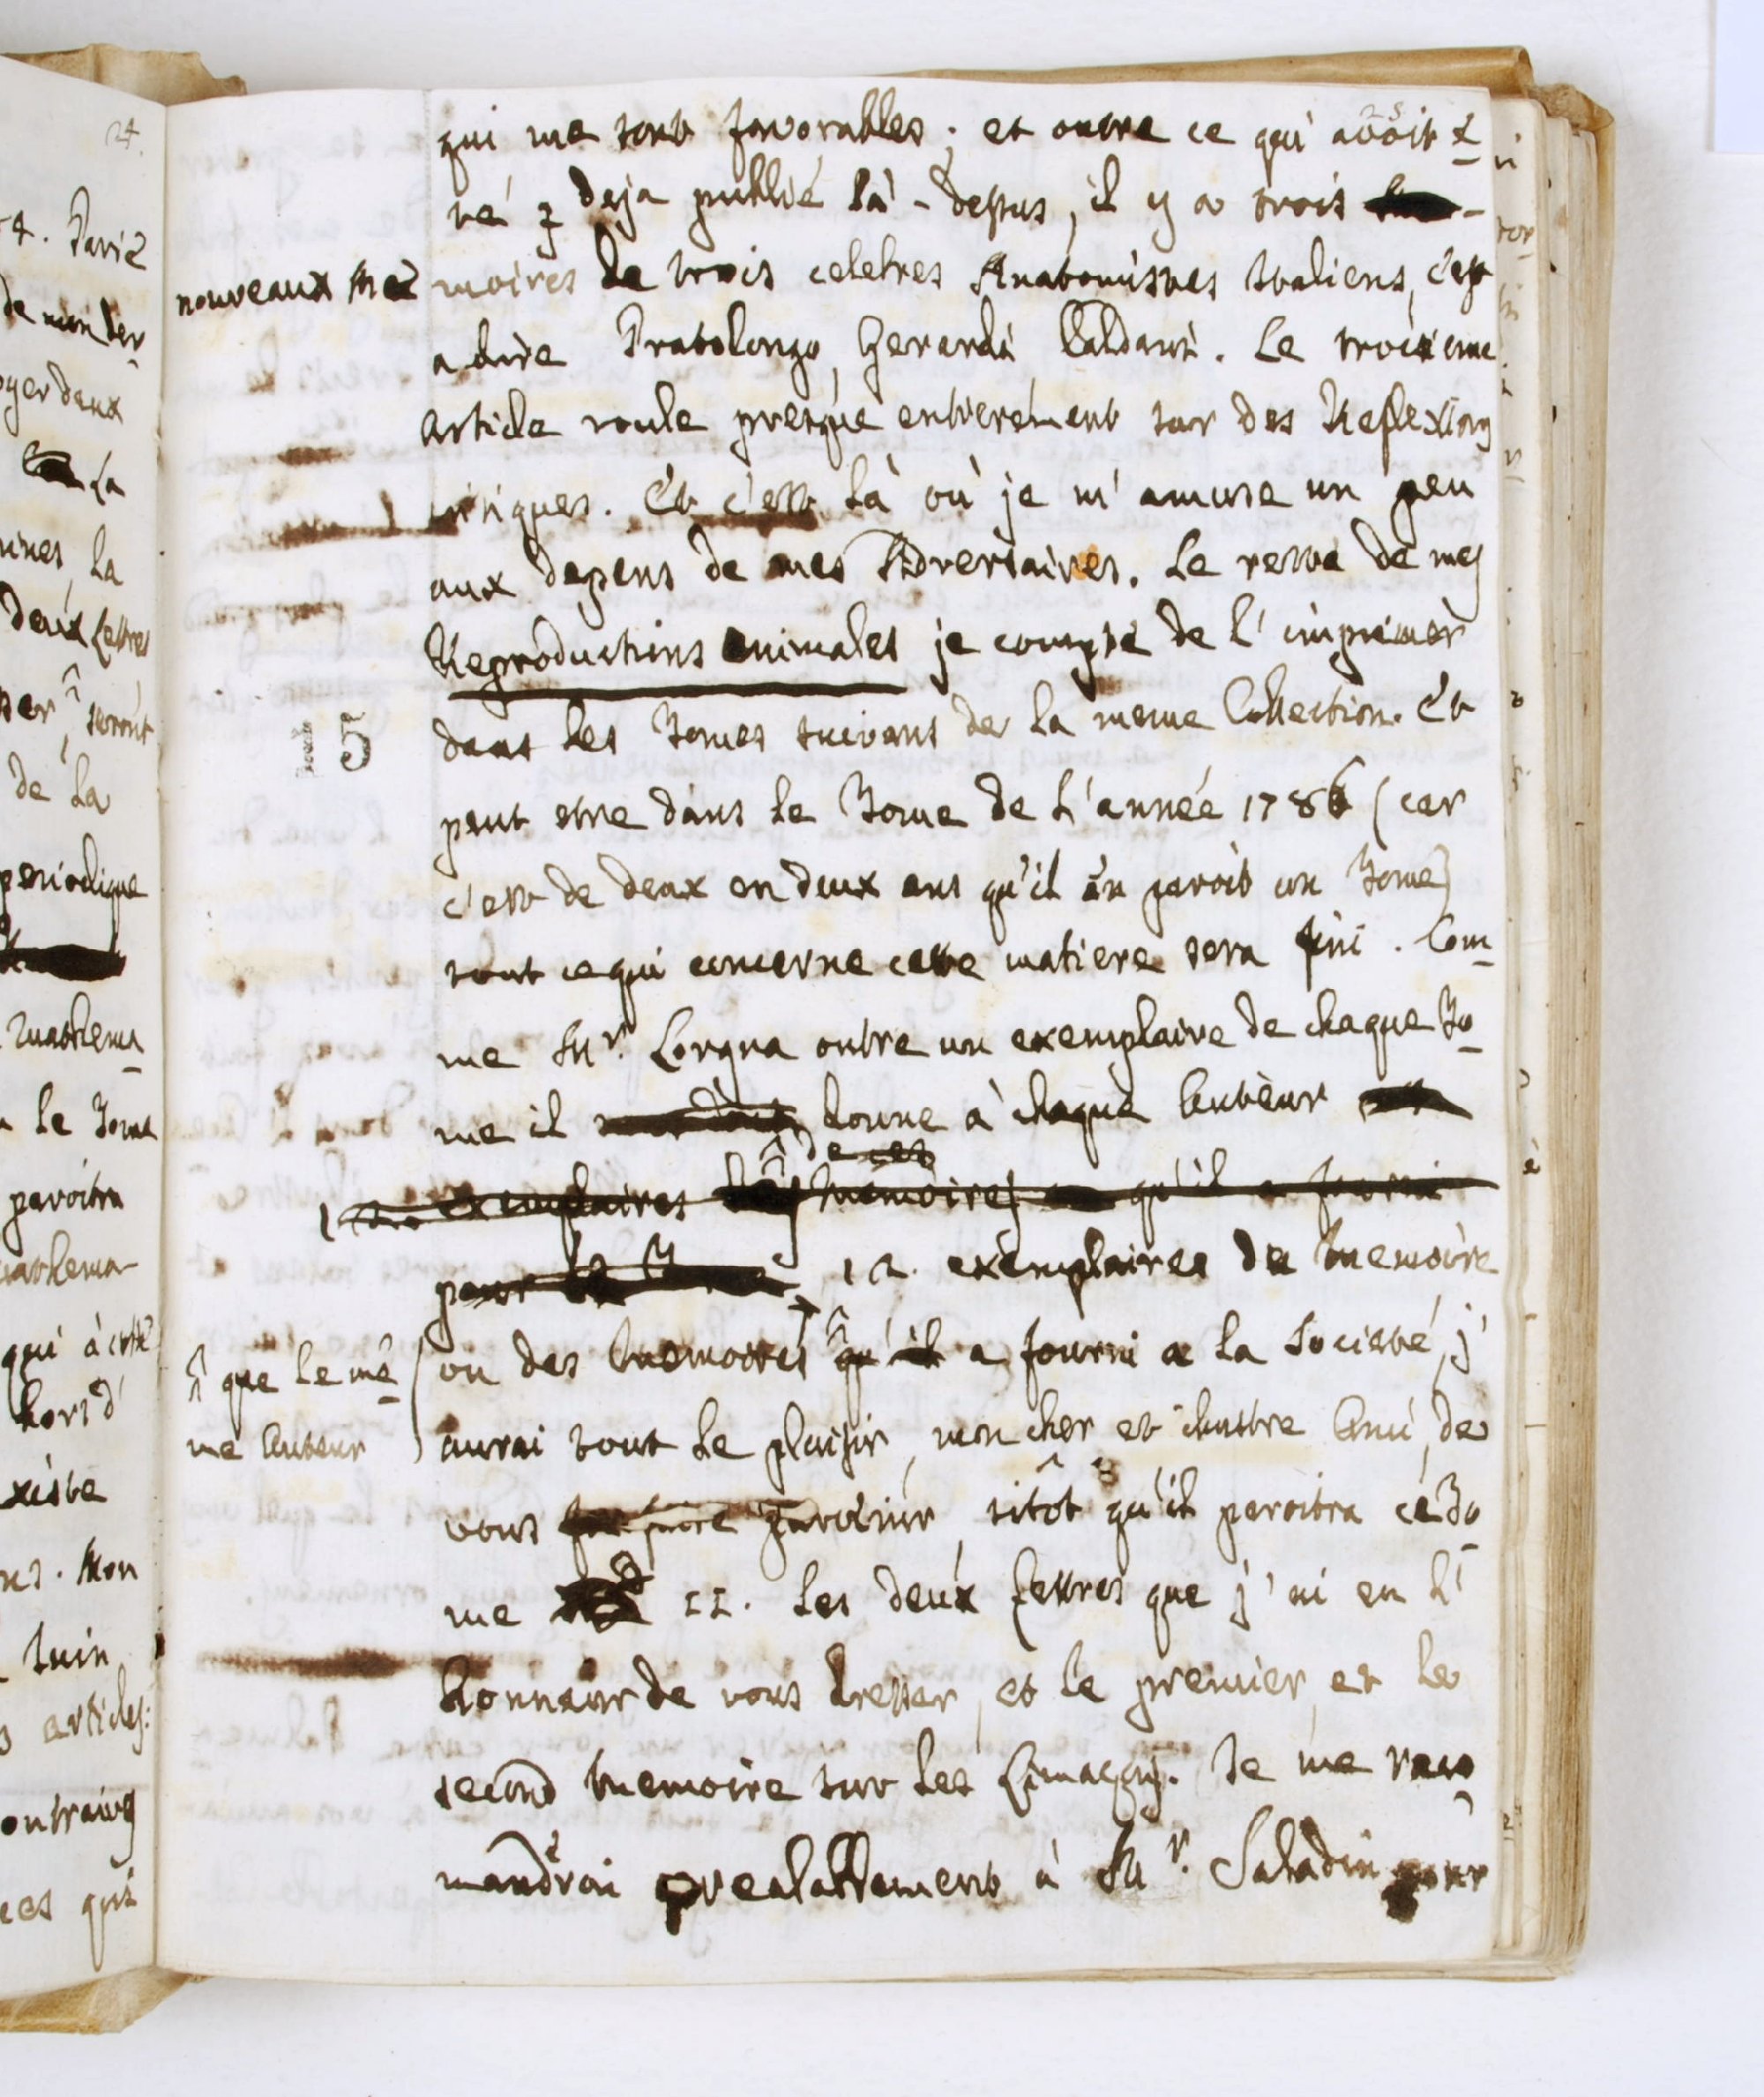 24.
25
qui me sont favorables; et outre ce qui avoit é
té deja publié là-dessus, il y a trois
nouveaux Mé
moires de trois celebres Anatomistes Italiens, c'est
a dire Pratolongo, Gerardi Caldani. Le troisieme
Article roule presque entierement sur des Reflexions
critiques. Et c'est là où je m'amuse un peu
aux depens de mes Adversaires. Le reste de mes
Reproductions animales je compte de l'imprimer
dans les Tomes suivans de la meme Collection. Et
15
peut etre dans le Tome de l'année 1786 (car
c'est de deux en deux ans qu'il en paroit un Tome)
tout ce qui concerne cette matiere sera fini. Com
me Mr. Lorgna outre un exemplaire de chaque To
me il donne à chaque Auteur
de ces
exemplaires memoires qu'il a fourni
pour 12. exemplaires du Memoire
ou des Memoires qu'il a fourni a la Societé, j'
que le mê
me Auteur
aurai tout le plaisir, mon cher et illustre Ami, de
vous parvenir, sitôt qu'il paroitra ce To
me II. Les deux Lettres que j'ai eu l'
honneur de vous dresser, et le premier, et le
second Memoire sur les Limaçons. Je me reco
manderai prealablement à Mr. Saladin pour
4. Paris
de mander
oyer deux
La
La
deux Lettres
seront
de La
periodique
Mathema
le Tome
paroitra
mathema
qui à coté
hors d'
xiste
Mon
Juin
articles:
ontraires
ces qui